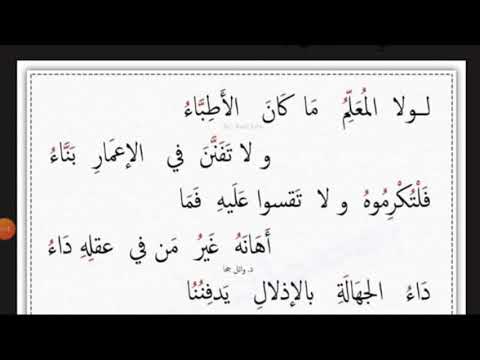 لـولا المُعَلِّمُ مَا كَانَ الأَطِبَّاءُ
و لا تَفَنَّنَ في الإعمَارِ بَنَّاءُ
فَلْتُكْرِمُوهُ و لا تَقسوا عَلَيهِ فَمَا
أَهَانَهُ غَيرُ مَن في عقلِهِ دَاءُ
د. وائل جحا
دَاءُ الجهَالَةِ بالإذلالِ يَدفِنُنُا